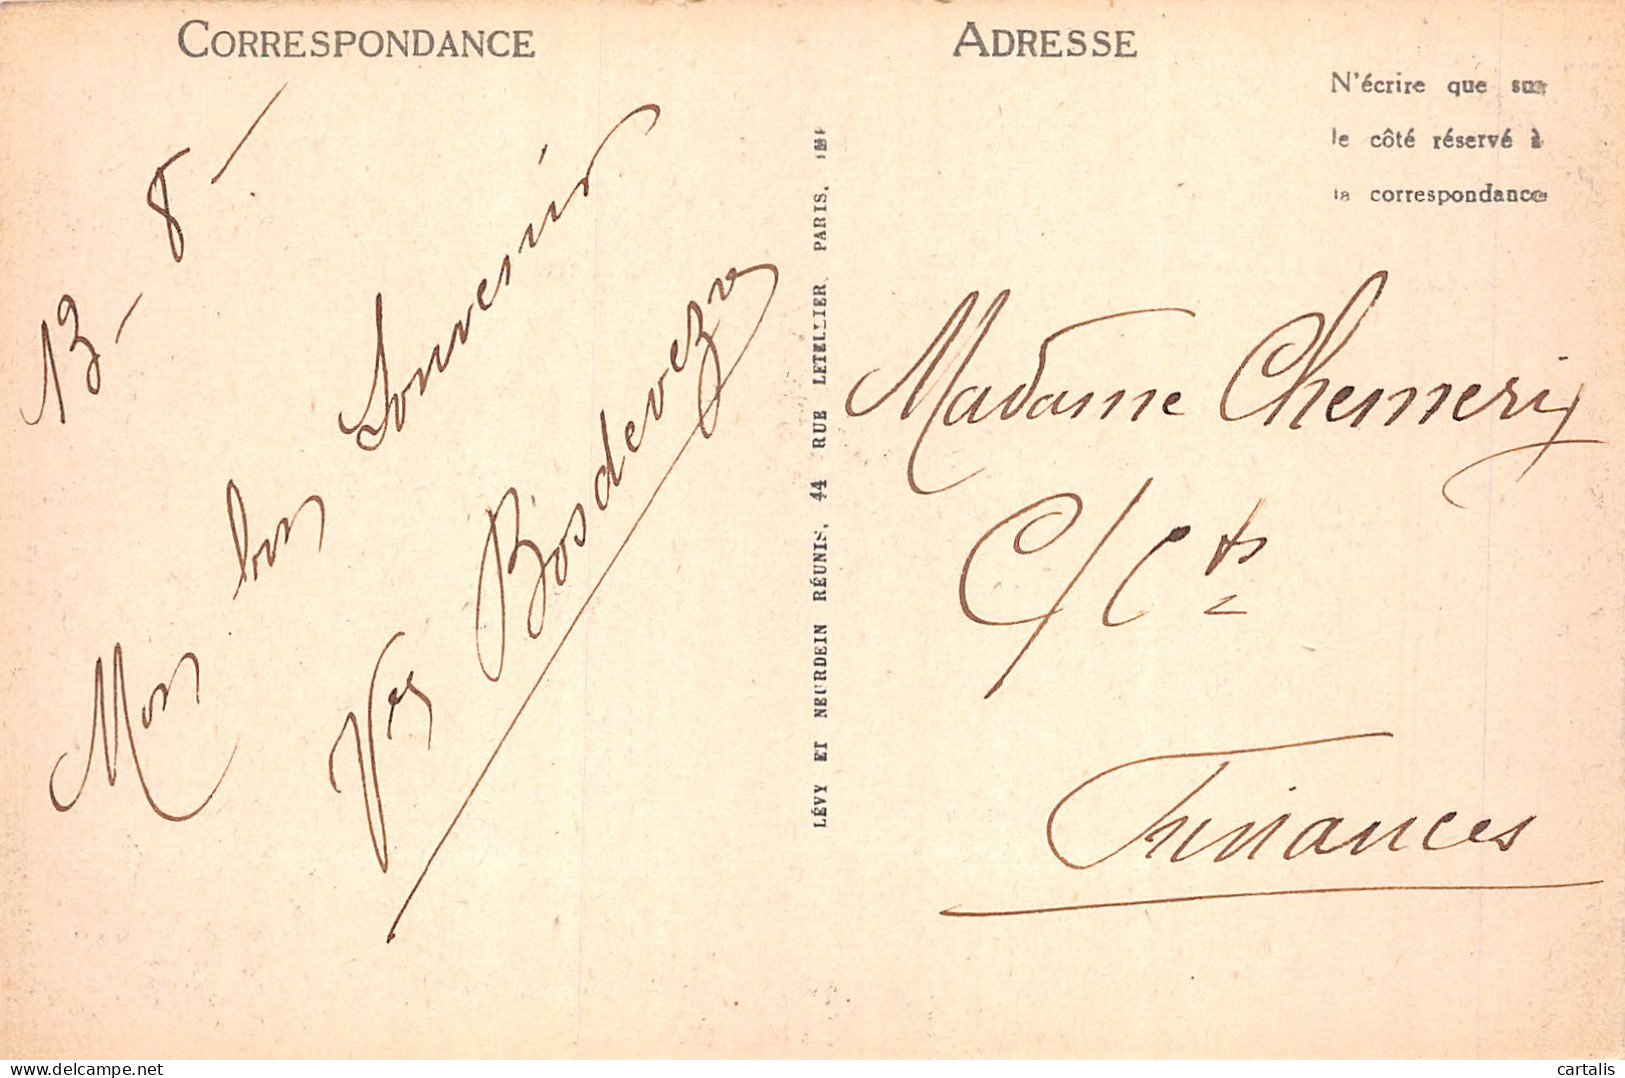 CORRESPONDANCE
13 - 8 -
Mon bon Souvenir
Bosdevezy
LÉVY ET NEURDEIN RÉUNIS, 44 RUE LETELLIER PARIS.
ADRESSE
N'écrire que sur
le côté réservé à
la correspondance
Madame Chemery
C/Cts
Finances
cartalis